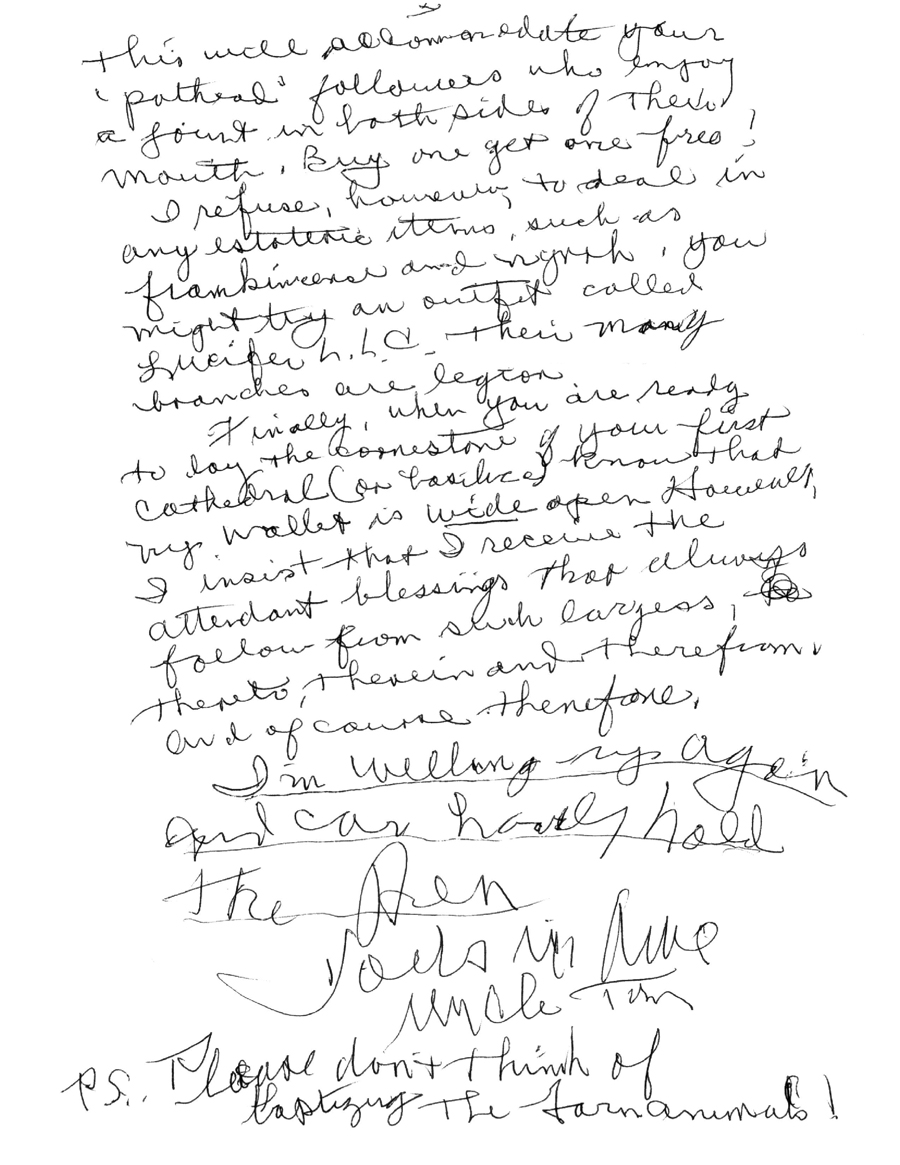 this will accommodate your
'pothead' followers who enjoy
a joint in both sides of their
mouth. Buy one get one free!
I refuse, however, to deal in
any esoteric items, such as
frankincense and myrrh. you
might try an outfit called
Lucifer L.L.C. Their many
branches are legion
Finally, when you are ready
to lay the cornestone of your first
Cathedral (or basilica) know that
my wallet is wide open However,
I insist that I receive the
attendant blessings that always
follow from such largess,
thereto, therein and therefrom,
and of course therefore.
I'm welling up again
and can hardly hold
the Pen
Yours in
Uncle Tom
P.S. Please don't think of
baptizing the farm animals!